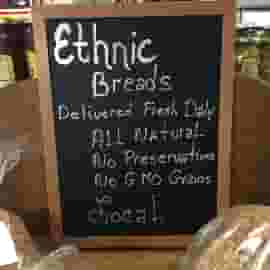 Ethnic
Breads
Delivered Fresh Daily
ALL NATURAL
No Preservatives
No GMO Grains